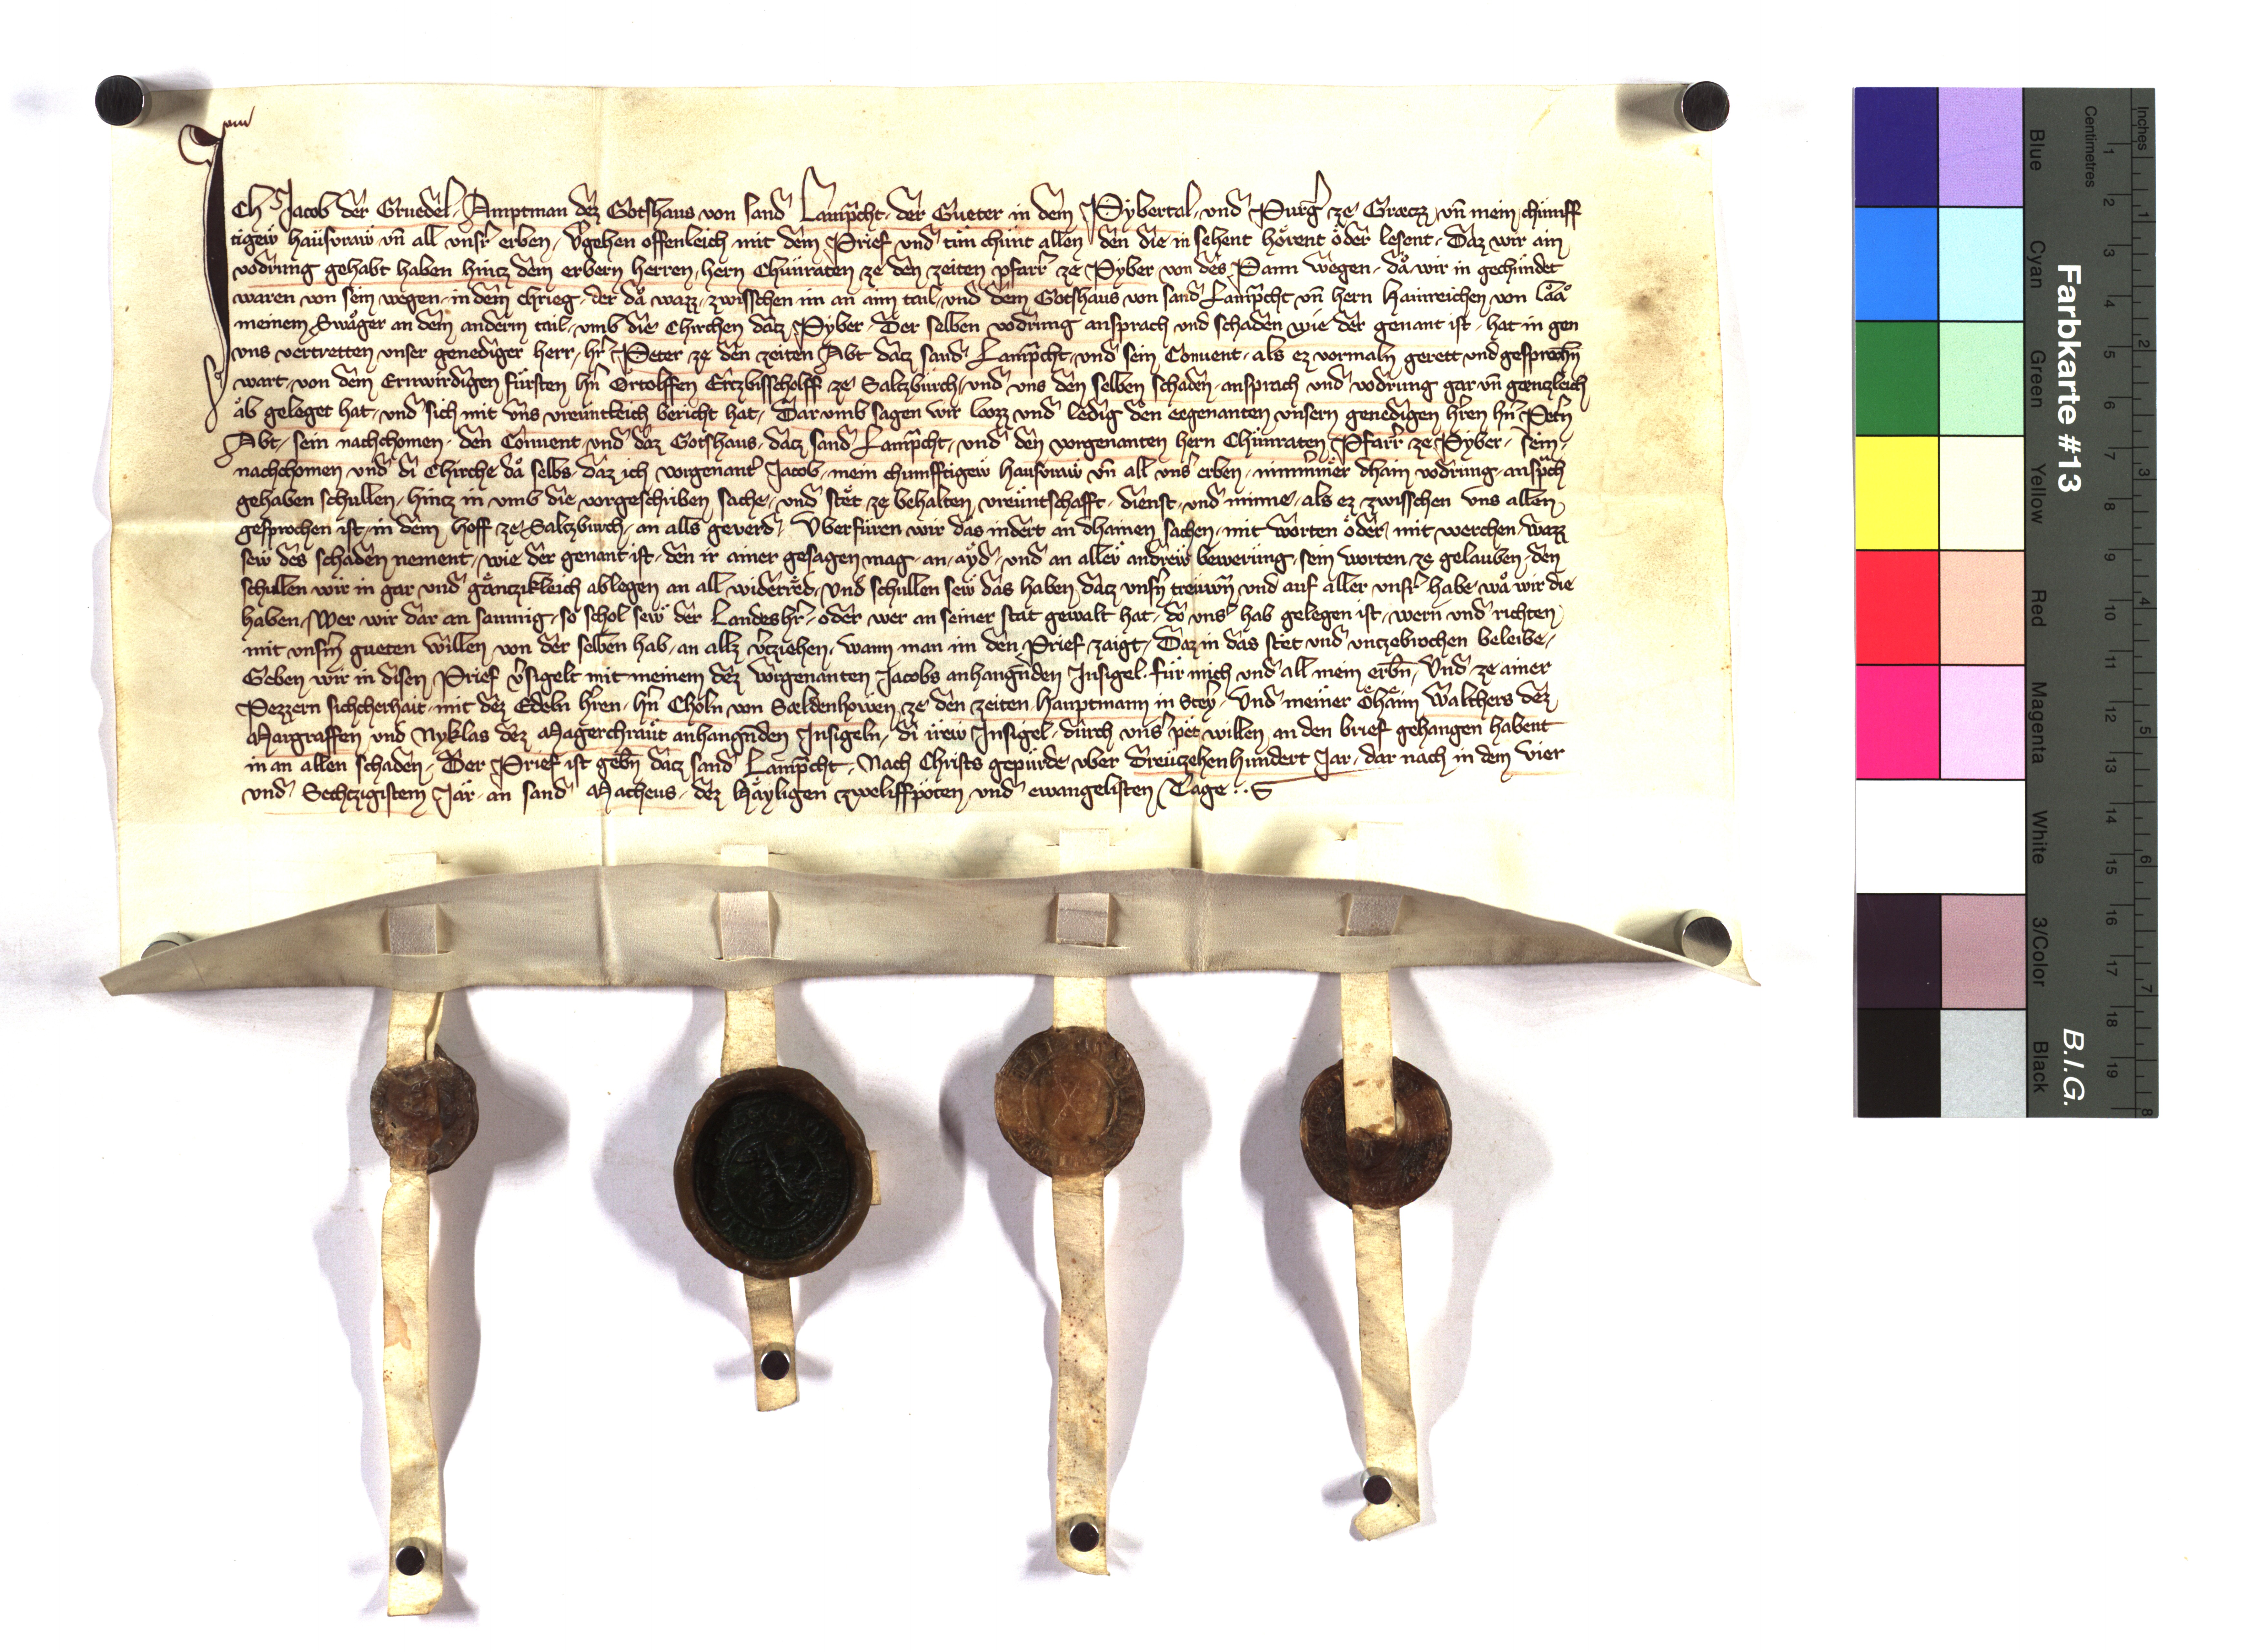 Ich Jacob der Gruedel Amptman dez Gotshaus von sand Lamprcht der Gueter in dem Pybertal und Purgr ze Graecz vn mein chunff
tigew hausvraw vn all unsr erben vgehen offenleich mit dem Prief und tun chunt allen den die in sehent hörent öder lesent Daz wir ain
vodrung gehabt haben hincz dem erbern herren hern Chunraten ze den zeiten pfarrr ze Pyber von des Pann wegen då wir in gechundet
waren von sein wegen in dem chrieg der då wazz zwisschen im an aim tail und dem Gotshaus von sand Lamprcht vn hern Hainreichen von Låå
meinem Swager an dem anderm tail umb die Chirchen dacz Pyber Der selben vodrung ansprach und schaden wie der genant ist hat in gen
uns vertretten unser genediger herr hr Peter ze den zeiten Abt dacz sand Lamprcht und sein Convent als ez vormaln gerett und gesprochn
wart von dem Erwirdigen fürsten hn Ortolffen Erczbisscholff ze Salczburch und uns den selben schaden ansprach und vodrung gar vn gaenczleich
åb geleget hat und sich mit uns vreuntleich bericht hat Dar umb sagen wir lozz und ledig den eegenanten unsern genedigen hren hn Petrn
Abt sein nachchomen den Convent und daz Gotshaus dacz sand Lamprcht und den vorgenanten hern Chunraten Pfarrr ze Pyber sein
nachchomen und di Chirche då selbs daz ich vorgenantr Jacob mein chumfftigew hausvraw vn all unsr erben nimmmer dhain vodrung ansprch
gehaben schullen hincz in umb die vorgeschriben sache und stet ze behalten vreuntschafft dienst und minne als ez zwisschen uns allen
gesprochen ist in dem hoff ze Salczburch an alls geverd Uberfüren wir das indert an dhainen sachen mit worten öder mit werchen wazz
sew des schaden nement wie der genant ist den ir ainer gesagen mag an ayd und an allew andrew bewerung sein worten ze gelauben den
schullen wir in gar und gånczikleich ablegen an all widerred Und schullen sew das haben dacz unsrn trewn und auf aller unsr habe wå wir die
haben Wer wir dar an saumig so schol sew der Landeshr oder wer an seiner stat gewalt hat do unsr hab gelegen ist wern und richten
mit unsrm gueten willen von der selben hab an allz vrziehen wann man im den Prief zaigt Daz in das stet und unczebrochen beleibe
Geben wir in disen Prief vrsigelt mit meinem dez vorgenanten Jacobs anhangnden Insigel für mich und all mein erbn Und ze ainer
Pezzern sichcherhait mit dez Edeln hren hn Choln von Saeldenhowen ze den zeiten Hauptmann in Steyr Und meiner Öhåim Walthers dez
Margraffen und Nyklas dez Magerchraut anhangnden Insigeln di irew Insigel durch unsr pet willen an den brief gehangen habent
in an allen schaden Der Prief ist gebn dacz sand Lamprcht Nach Christs gepurde uber Dreuczehenhundert Jar dar nach in dem Vier
und Sechczigistem Jår an sand Matheus dez Håyligen zweliffpoten und ewangelisten Tage
Farbkarte #13
B.I.G.
Inches
Centimetres
1 2 3 4 5 6 7 8 9 10 11 12 13 14 15 16 17 18 19
1 2 3 4 5 6 7 8
Blue
Cyan
Green
Yellow
Red
Magenta
White
3/Color
Black